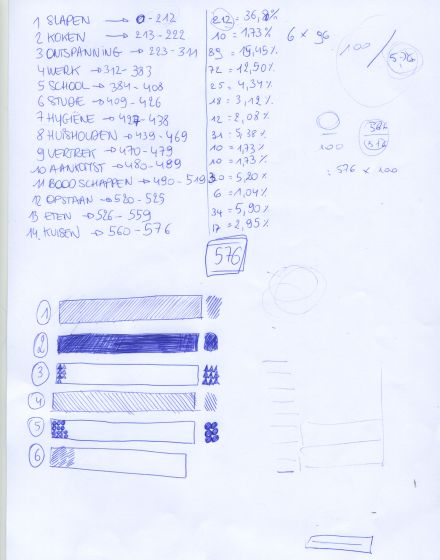 1 SLAPEN → 0-212 212 = 36,8%
2 KOKEN → 213-222 10 = 1,73%
3 ONTSPANNING → 223-311 89 = 15,45%
4 WERK → 312-383 72 = 12,50%
5 SCHOOL → 384-408 25 = 4,34%
6 STUDE → 409-426 18 = 3,12%
7 HYGIENE → 427-438 12 = 2,08%
8 HUISHOUDEN → 439-469 31 = 5,38%
9 VERTREK → 470-479 10 = 1,73%
10 AANKOMST → 480-489 10 = 1,73%
11 BOODSCHAPPEN → 490-519 30 = 5,20%
12 OPSTAAN → 520-525 6 = 1,04%
13 ETEN → 526-559 34 = 5,90%
14. KUISEN → 560-576 17 = 2,95%
576
6 x 96
100 / 576
100
: 576 x 100
1
2
3
4
5
6